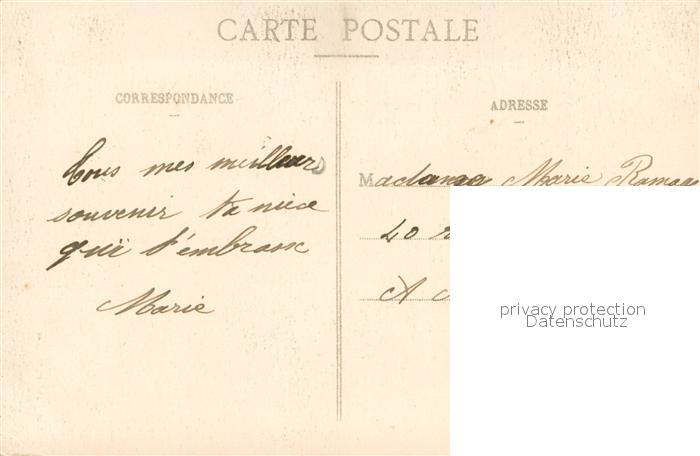 CARTE POSTALE
CORRESPONDANCE
Tous mes meilleurs
souvenir ta niece
qui t'embrasse
Marie
ADRESSE
Madame Marie
40
A
privacy protection
Datenschutz